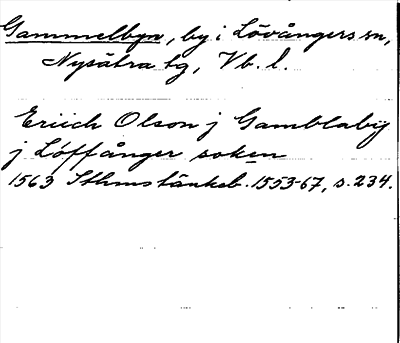 Gammelbyn, by i Lövångers sn,
Nysätra tg, Vb. l.
Eriich Olson j Gamblaby
j Löffånger soken
1563 Sthms tänkeb. 1553-67, s. 234.